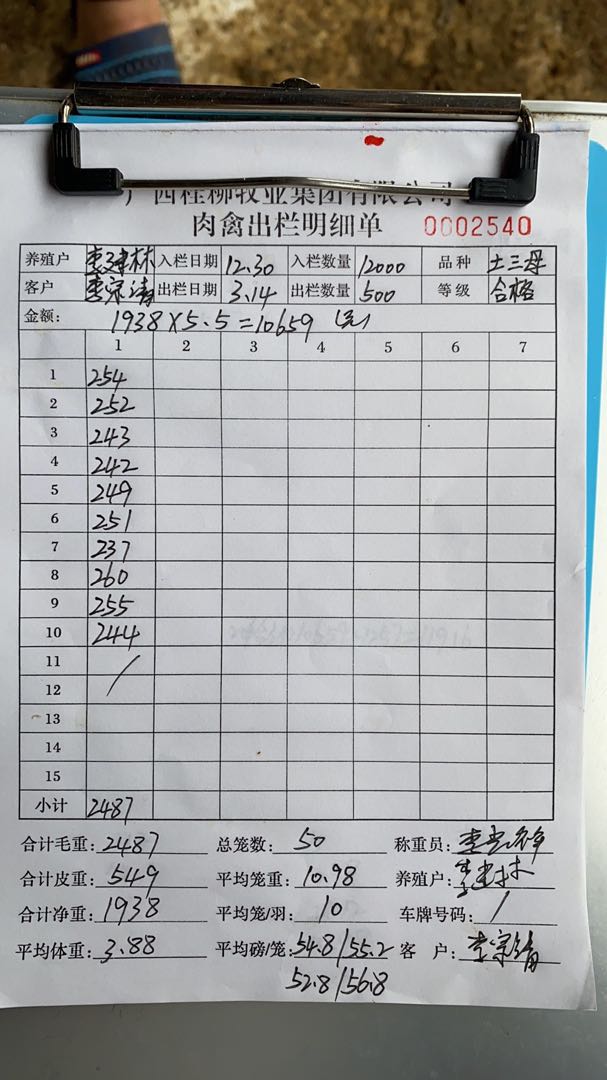 广西桂柳牧业集团有限公司
肉禽出栏明细单 0002540
养殖户 李建林 入栏日期 12.30 入栏数量 12000 品种 土三母
客户 李宗清 出栏日期 3.14 出栏数量 500 等级 合格
金额: 1938×5.5=10659
1 2 3 4 5 6 7
1 254
2 252
3 243
4 242
5 249
6 251
7 237
8 260
9 255
10 244
11 /
12
13
14
15
小计 2487
合计毛重: 2487 总笼数: 50 称重员:
合计皮重: 549 平均笼重: 10.98 养殖户: 李建林
合计净重: 1938 平均笼/羽: 10 车牌号码: /
平均体重: 3.88 平均磅/笼: 54.8/55.2 客 户: 李宗清
52.8/56.8